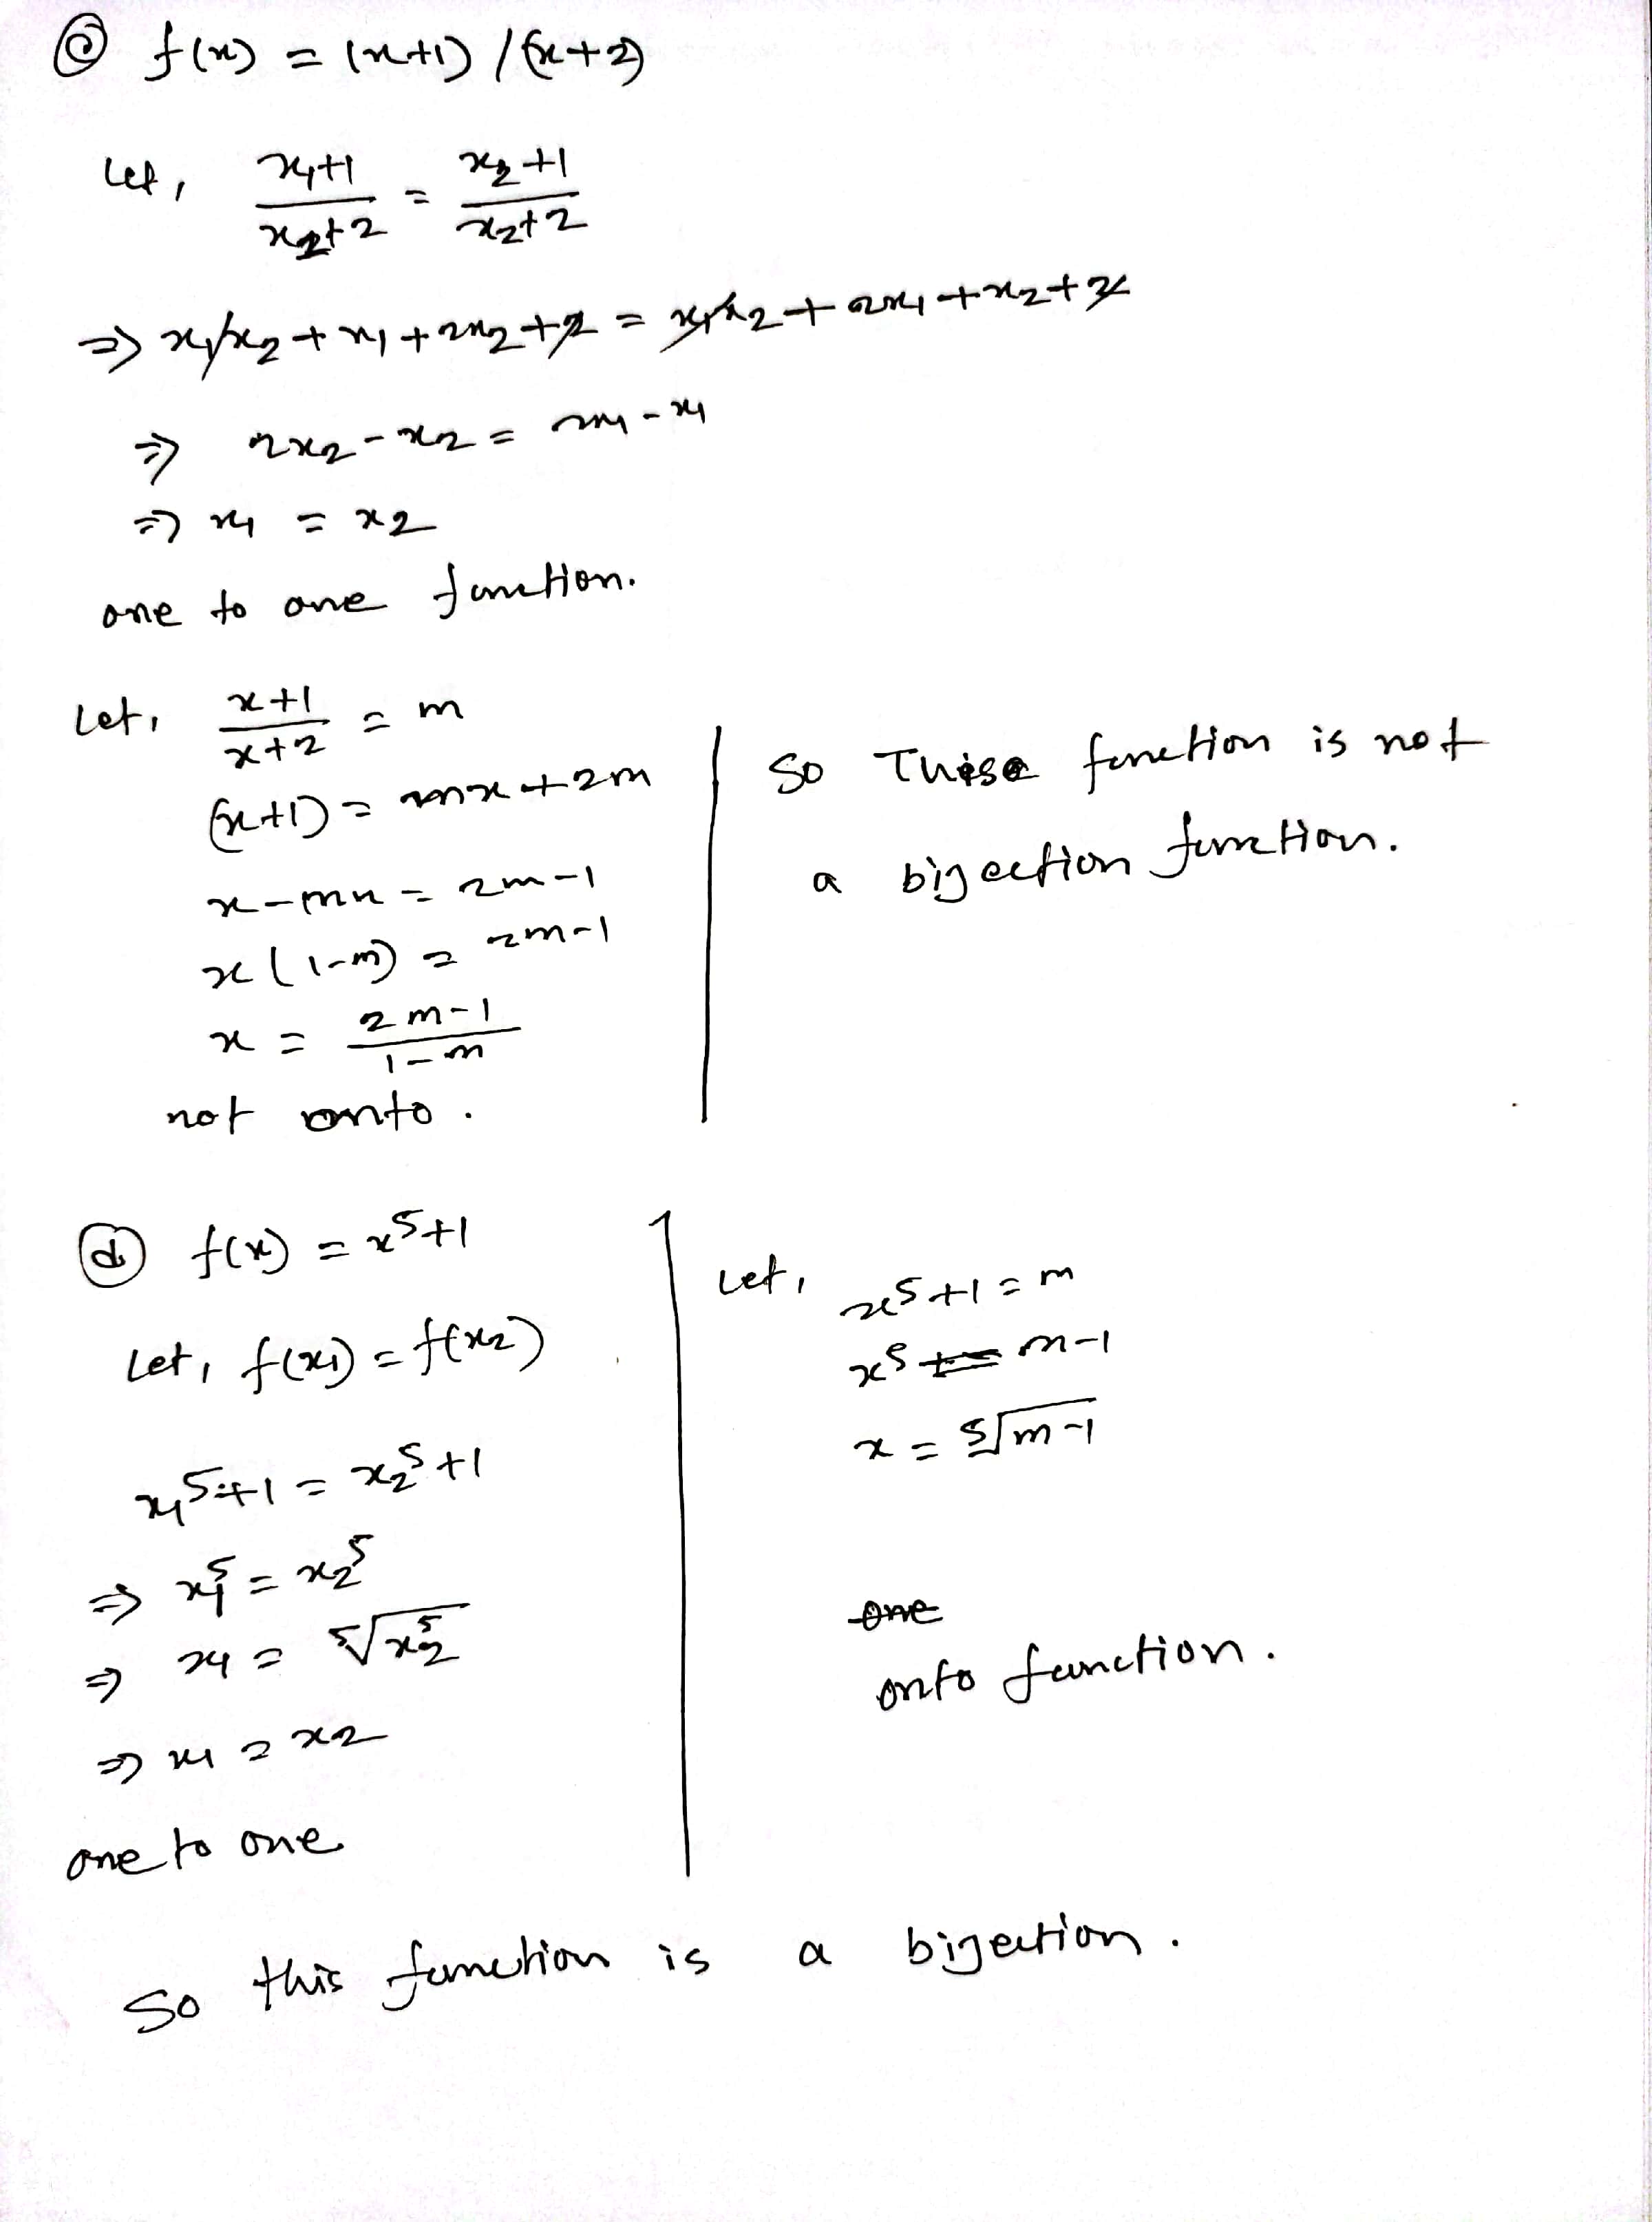 (c) f(x) = (x+1) / (x+2)
Let, (x₁+1)/(x₂+2) = (x₂+1)/(x₂+2)
⇒ x₁x₂ + x₁ + 2x₂ + 2 = x₁x₂ + 2x₁ + x₂ + 2
⇒ 2x₂ - x₂ = 2x₁ - x₁
⇒ x₁ = x₂
one to one function.
Let, (x+1)/(x+2) = m
(x+1) = mx + 2m
x - mx = 2m - 1
x(1-m) = 2m-1
x = (2m-1)/(1-m)
not onto.
So These function is not
a bijection function.
(d) f(x) = x⁵+1
Let, f(x₁) = f(x₂)
x₁⁵+1 = x₂⁵+1
⇒ x₁⁵ = x₂⁵
⇒ x₁ = ⁵√x₂⁵
⇒ x₁ = x₂
one to one
Let, x⁵+1 = m
x⁵ = m-1
x = ⁵√(m-1)
one
onto function.
So this function is a bijection.